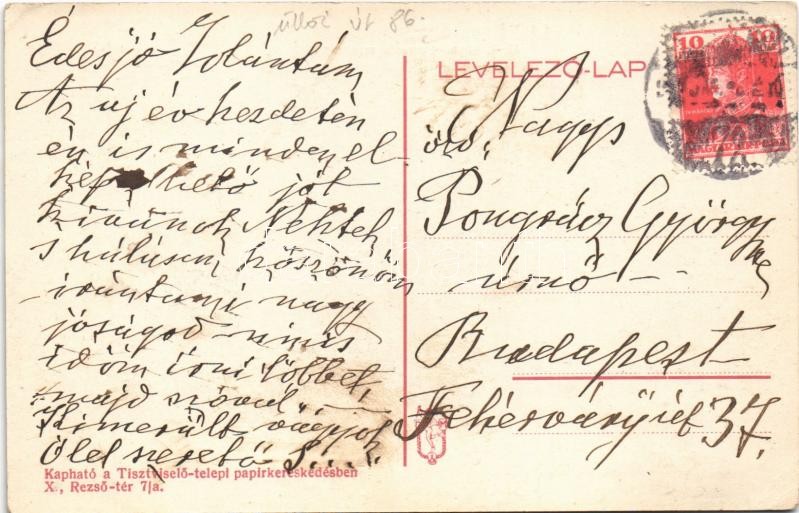 üllői út 86.
Édes jó Jolántám
Az uj év kezdetén
én is minden el-
képzelhető jót
kivánok Nektek
s hálásan köszönöm
irántami nagy
jóságod nincs
időm írni többet,
majd szóval –
Kimerült vagyok
Ölel szerető S....
Kapható a Tisztviselő-telepi papirkereskedésben
X., Rezső-tér 7/a.
LEVELEZŐ-LAP
10 10
MAGYAR KIR. POSTA
Nagys
özv.
Pongrácz Györgyné
úrnő –
Budapest
Fehérváry út 37.